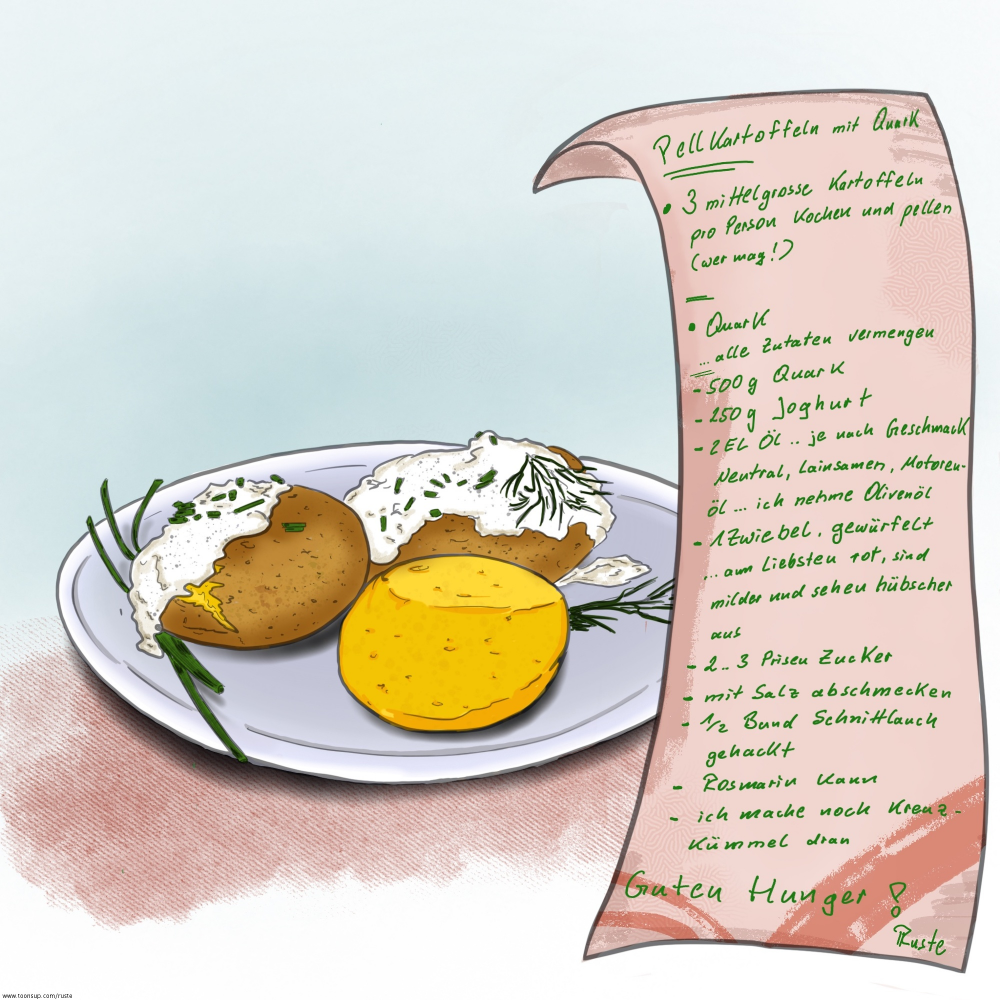 Pellkartoffeln mit Quark
• 3 mittelgrosse Kartoffeln
pro Person kochen und pellen
(wer mag!)
• Quark
... alle Zutaten vermengen
- 500g Quark
- 250g Joghurt
- 2 EL Öl .. je nach Geschmack
Neutral, Lainsamen, Motoren-
öl ... ich nehme Olivenöl
- 1 Zwiebel, gewürfelt
... am liebsten rot, sind
milder und sehen hübscher
aus
- 2.. 3 Prisen Zucker
- mit Salz abschmecken
- 1/2 Bund Schnittlauch
gehackt
- Rosmarin kann
- ich mache noch Kreuz-
kümmel dran
Guten Hunger!
Ruste
www.toonsup.com/ruste